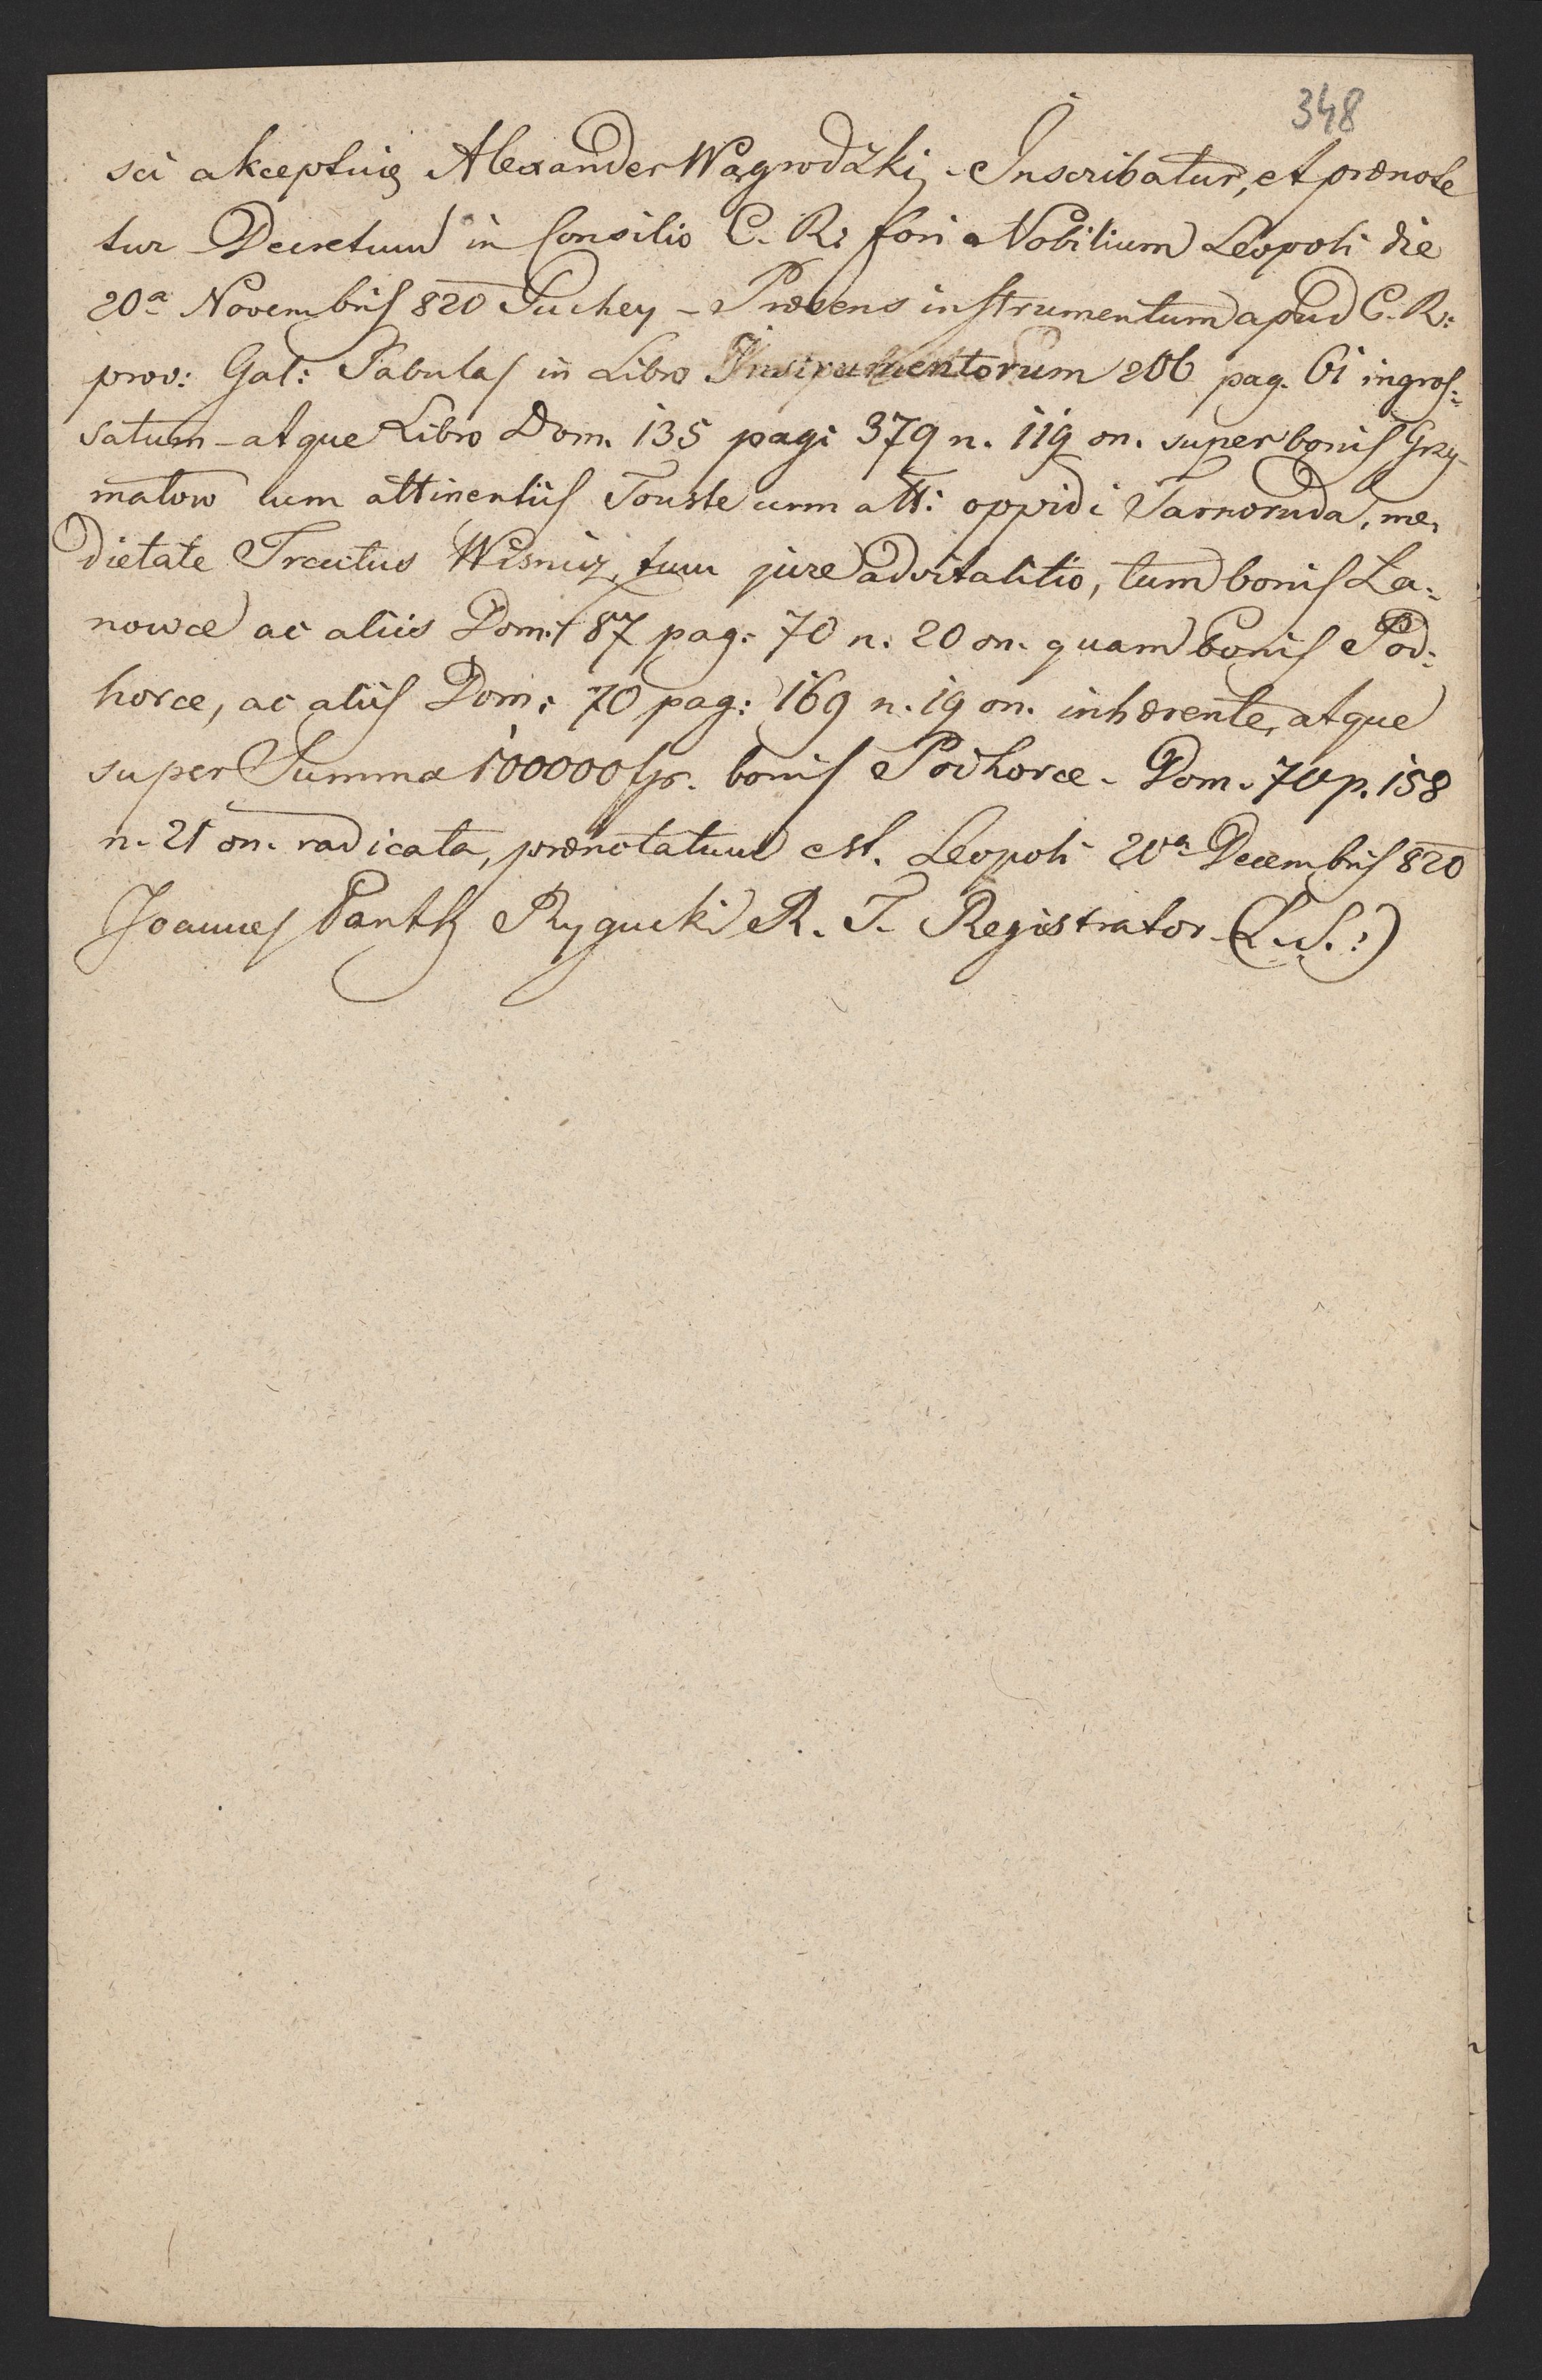 348
sci akceptuię Alexander Wagrodzki, - Inscribatur, et prænote
tur Decretum in Consilio C. R: fori Nobilium Leopoli die
20a Novembris 820 Puchey - Præsens instrumentum apud C. R:
prov: Gal: Tabulas in Libro Instrumentorum 206 pag. 61 ingros:
satum - atque Libro Dom. 135 pag: 379 n. 119 on. super bonis Grzy-
matow cum attinentiis Touste cum att: oppidi Tarnoruda, me,
dietate Tractus Wisniez, tum jure advitalitio, tum bonis La:
nowce ac aliis Dom: 87 pag: 70 n. 20 on. quam bonis Pod:
horce, ac aliis Dom: 70 pag: 169 n. 19 on. inhærente, atque
super Summa 100000 fp. bonis Podhorce - Dom. 70 p. 158
n. 21 on. radicata, prænotatum est. Leopoli 20a Decembris 820
Joannes Rygucki R. T. Registrator (L.S.:)